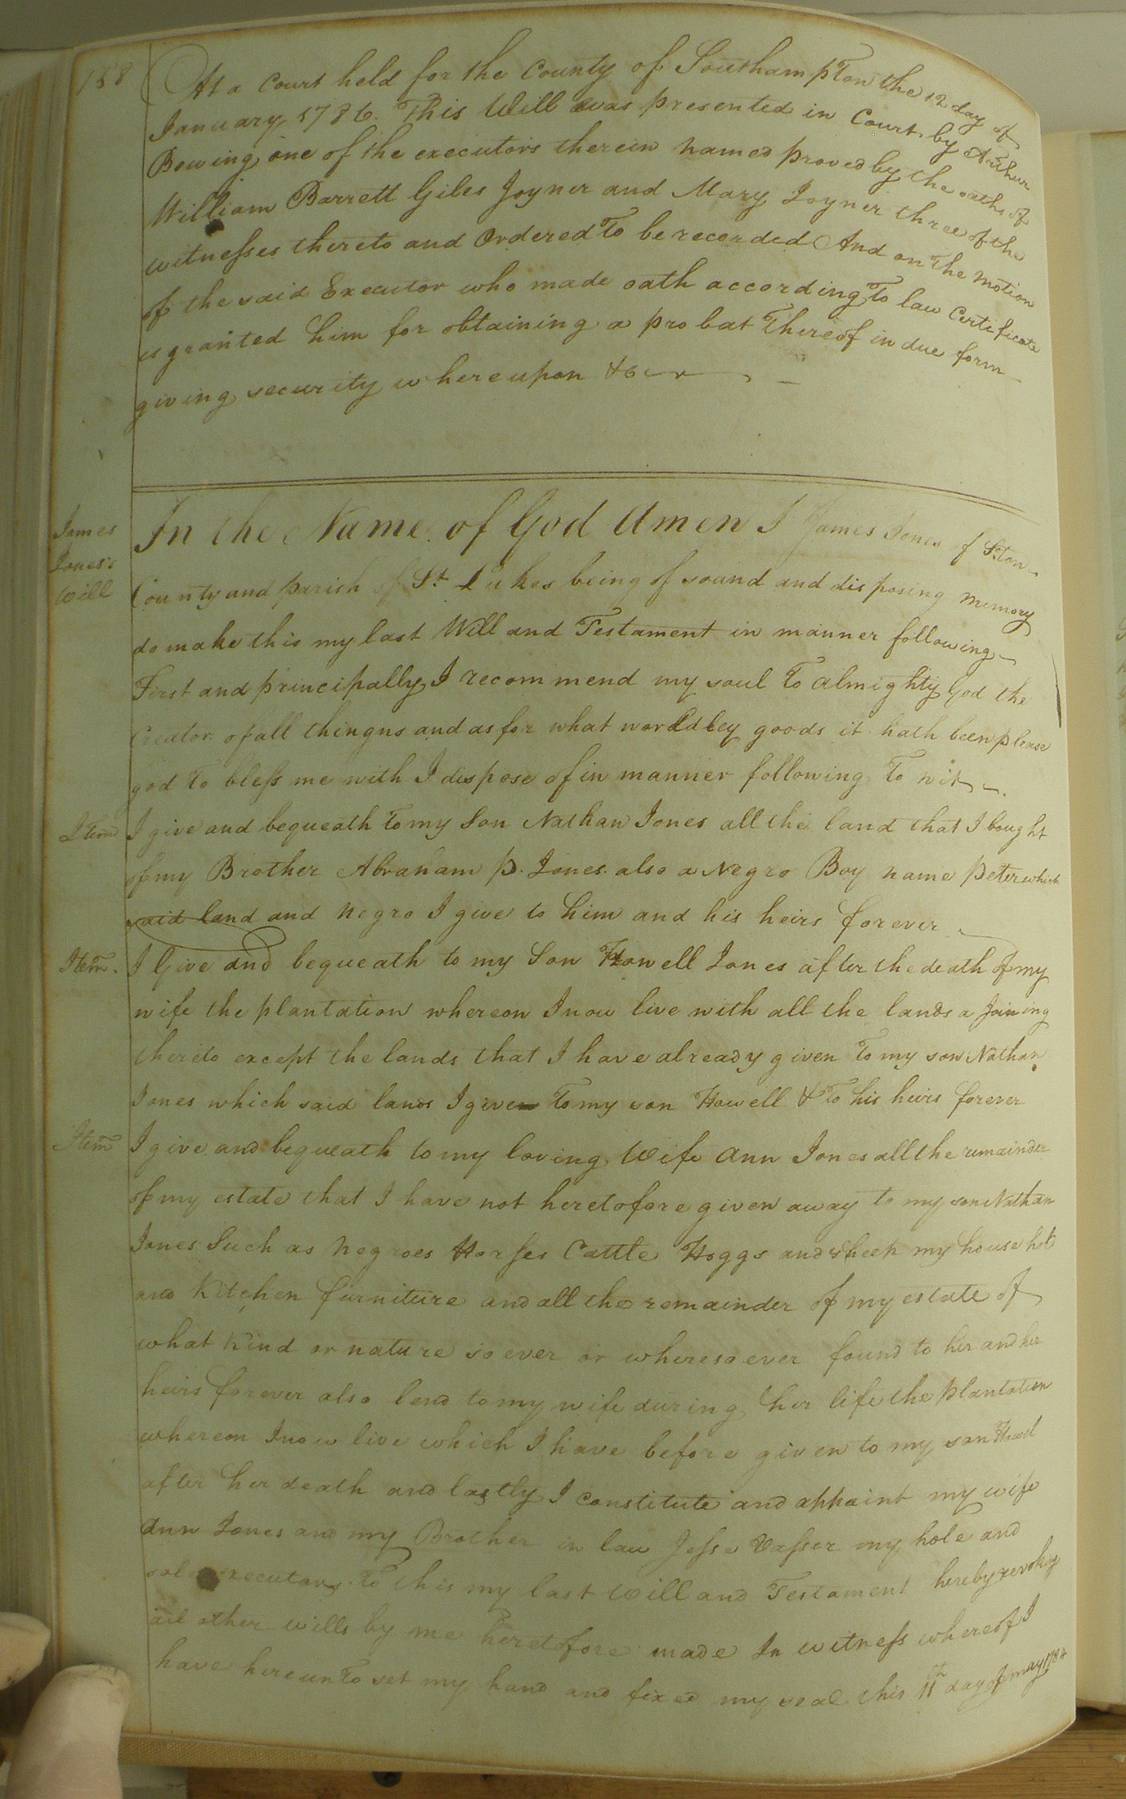 158
At a Court held for the County of Southampton the 12 day of
January 1786. This Will was presented in Court by Arthur
Bowing one of the executors therein named proved by the oaths of
William Barrett Giles Joyner and Mary Joyner three of the
witnesses thereto and Ordered To be recorded And on the motion
of the said Executor who made oath according To law Certificate
is granted him for obtaining a probat Thereof in due form
giving security whereupon &c
James
Jones's
Will
In the Name of God Amen I James Jones of Ston
County and parish of St. Lukes being of sound and disposing memory
do make this my last Will and Testament in manner following
First and principally I recommend my soul To almighty God the
Creator of all thingns and as for what worldley goods it hath been please
god To bless me with I dispose of in manner following To wit
Item I give and bequeath To my Son Nathan Jones all the land that I bought
of my Brother Abraham p. Jones also a Negro Boy name peter which
said land and negro I give to him and his heirs forever
Item. I Give and bequeath to my Son Howell Jones after the death of my
wife the plantation whereon I now live with all the lands a Joining
thereto except the lands that I have already given To my son Nathan
Jones which said lands I give To my son Howell & To his heirs forever
Item I give and bequeath to my loving Wife Ann Jones all the remainder
of my estate that I have not heretofore given away to my son Nathan
Jones Such as negroes Horses Cattle Hoggs and sheep my house hol
and Kitchen furniture and all the remainder of my estate of
what kind or nature so ever or wheresoever found to her and her
heirs forever also lend to my wife during her life the plantation
whereon I now live which I have before given to my son
after her death and lastly I constitute and appoint my wife
Ann Jones and my Brother in law Jesse Vasser my hole and
sole executors To this my last Will and Testament hereby revoking
all other wills by me heretofore made In witness whereof I
have hereunto set my hand and fixed my seal this 11th day of may